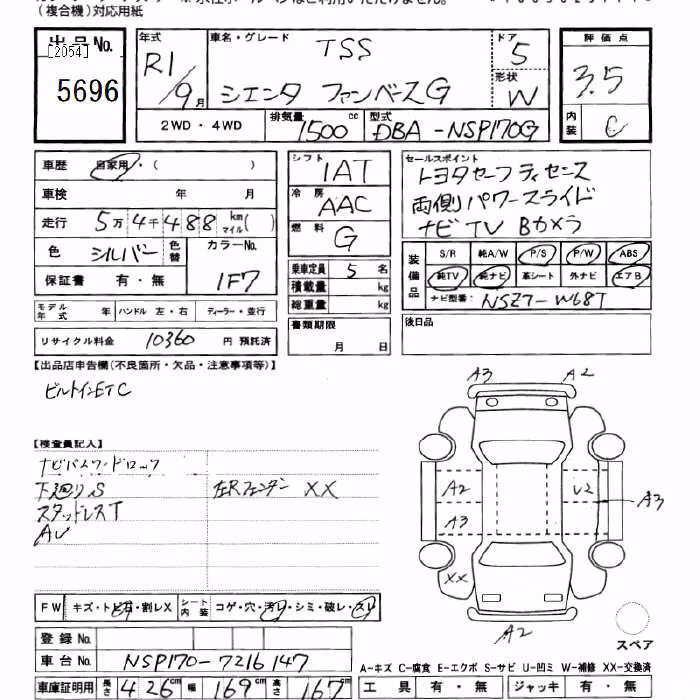 (複合機)対応用紙
出品No.
[2054]
5696
年式 R1/9月
車名・グレード TSS
シエンタ ファンベースG
ドア 5
形状 W
2WD・4WD
排気量 1500cc
型式 DBA-NSP170G
評価点
3.5
内装 C
車歴 自家用・( )
車検 年 月
走行 5万4千488 km マイル( )
色 シルバー 色替
カラーNo. 1F7
保証書 有・無
シフト 1AT
冷房 AAC
燃料 G
乗車定員 5名
積載量 kg
総重量 kg
セールスポイント
トヨタセーフティセンス
両側パワースライド
ナビTV Bカメラ
装備品 S/R 純A/W P/S P/W ABS
純TV 純ナビ 革シート 外ナビ エアB
ナビ型番: NSZ7-W68T
モデル年式 年 ハンドル 左・右 ディーラー・並行
リサイクル料金 10360 円 預託済
書類期限
月 日
後日品
【出品店申告欄(不良箇所・欠品・注意事項等)】
ビルトインETC
【検査員記入】
ナビパスワードロック
下廻りS 左Rフェンダー XX
スタッドレスT
AU
A3 A2
A2 U2 A3
A3
XX
A2
スペア
FW キズ・トビ石・割レX シート内装 コゲ・穴・汚レ・シミ・破レ・スレ
登録No.
車台No. NSP170-7216147
車庫証明用 長さ 426cm 幅 169cm 高さ 167cm
A-キズ C-腐食 E-エクボ S-サビ U-凹ミ W-補修 XX-交換済
工具 有・無 ジャッキ 有・無